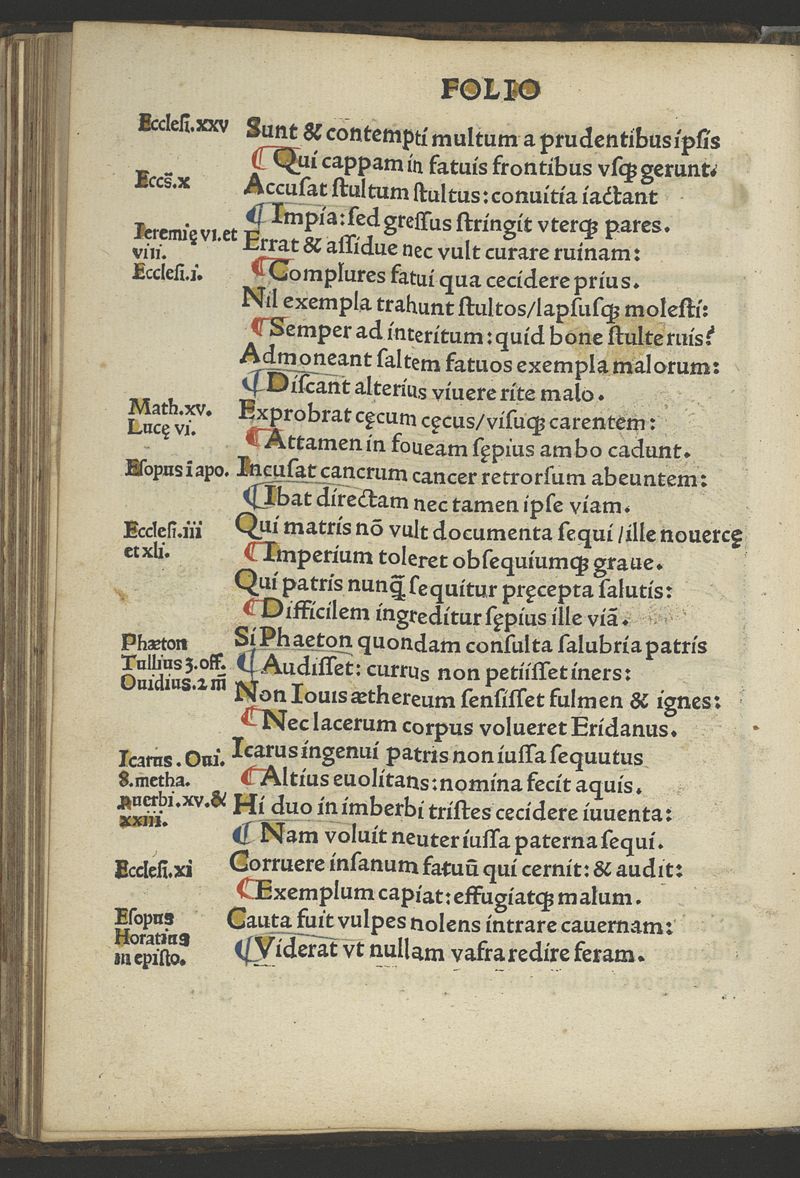 FOLIO
Eccleſi.xxv
Sunt & contempti multum a prudentibus ipſis
¶ Qui cappam in fatuis frontibus vſqꝫ gerunt.
Eccs̄.x
Accuſat ſtultum ſtultus: conuitia iactant
¶ Impia: ſed greſſus ſtringit vterqꝫ pares.
Ieremię vi. et
viii.
Errat & aſſidue nec vult curare ruinam:
Eccleſi.i.
¶ Complures fatui qua cecidere prius.
Nil exempla trahunt ſtultos/lapſuſqꝫ moleſti:
¶ Semper ad interitum: quid bone ſtulte ruis?
Admoneant ſaltem fatuos exempla malorum:
¶ Diſcant alterius viuere rite malo.
Math.xv.
Exprobrat cęcum cęcus/viſuqꝫ carentem:
Lucę vi.
¶ Attamen in foueam ſępius ambo cadunt.
Eſopus i apo.
Incuſat cancrum cancer retrorſum abeuntem:
¶ Ibat directam nec tamen ipſe viam.
Eccleſi.iii
et xli.
Qui matris nō vult documenta ſequi/ille nouercę
¶ Imperium toleret obſequiumqꝫ graue.
Qui patris nunq̄ ſequitur pręcepta ſalutis:
¶ Difficilem ingreditur ſępius ille viā.
Phæton
Si Phaeton quondam conſulta ſalubria patris
Tullius 3.off.
¶ Audiſſet: currus non petiiſſet iners:
Ouidius.2 m̄
Non Iouis æthereum ſenſiſſet fulmen & ignes:
¶ Nec lacerum corpus volueret Eridanus.
Icarus. Oui.
Icarus ingenui patris non iuſſa ſequutus
8.metha.
¶ Altius euolitans: nomina fecit aquis.
ꝓuerbi.xv.&
xxiii.
Hi duo in imberbi triſtes cecidere iuuenta:
¶ Nam voluit neuter iuſſa paterna ſequi.
Eccleſi.xi
Corruere inſanum fatuū qui cernit: & audit:
¶ Exemplum capiat: effugiatqꝫ malum.
Eſopus
Cauta fuit vulpes nolens intrare cauernam:
Horatius
in epiſto.
¶ Viderat vt nullam vafra redire feram.